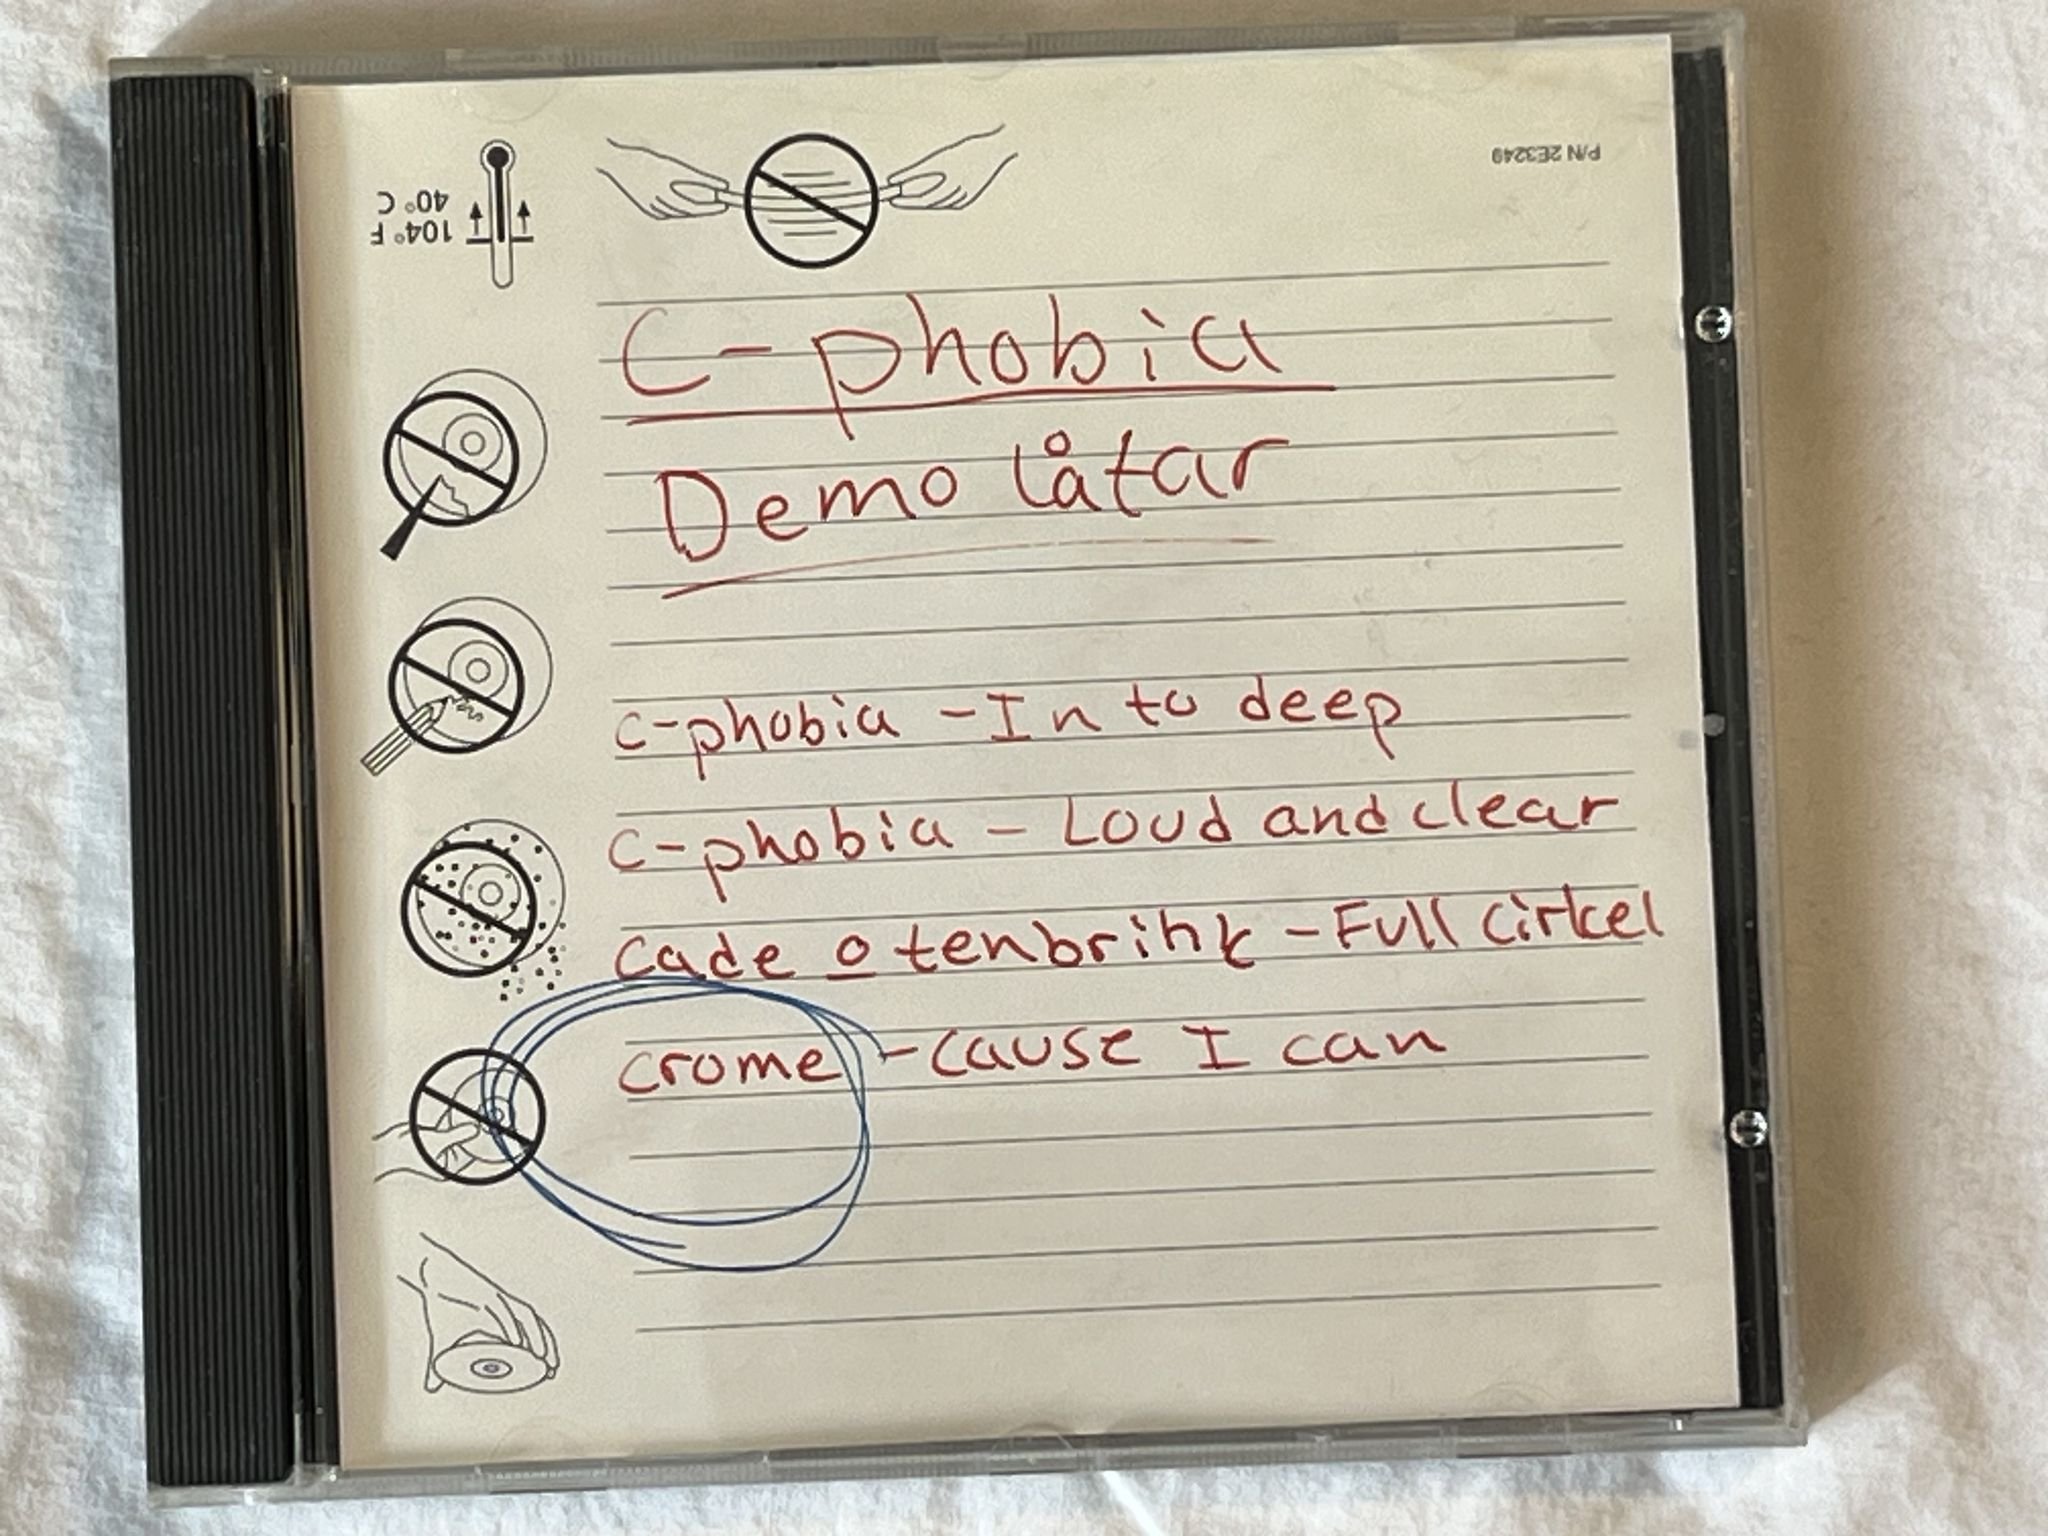 P/N 2E3249
104°F
40°C
C-phobia
Demo låtar
c-phobia - In to deep
c-phobia - Loud and clear
cade o tenbrink - Full cirkel
crome - cause I can